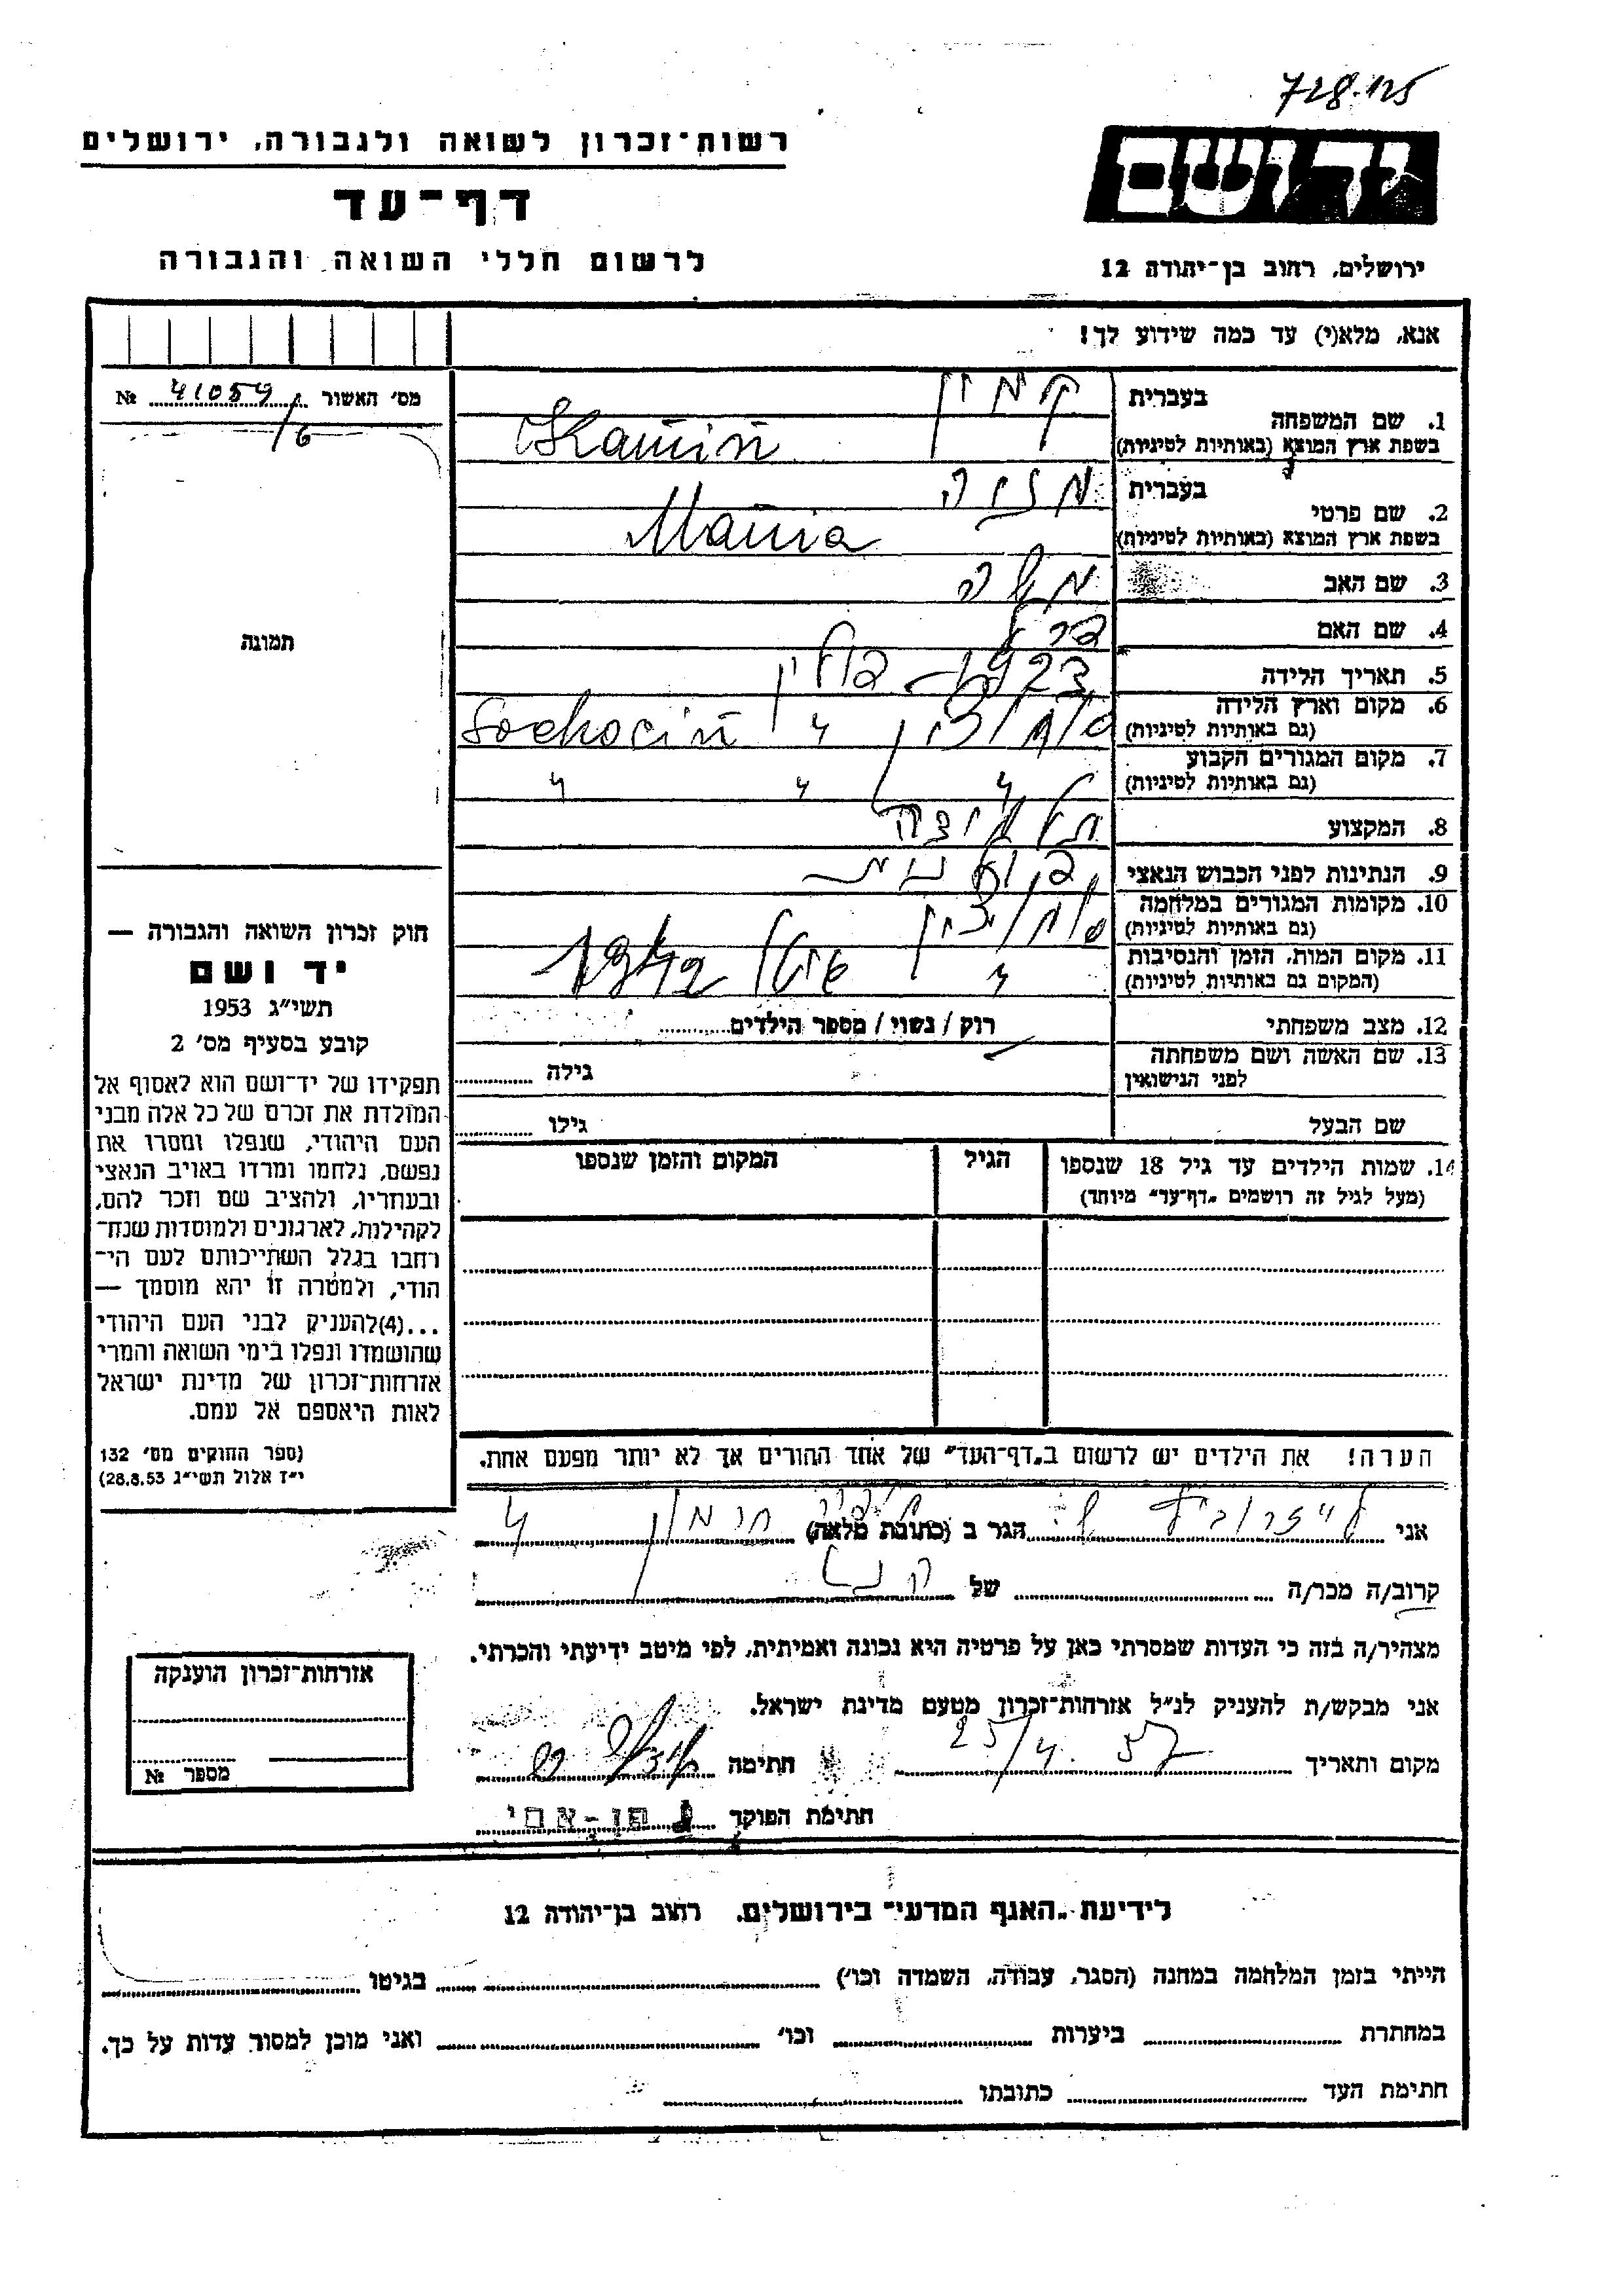 728.125
רשות־זכרון לשואה ולגבורה, ירושלים
יד ושם
דף־עד
לרשום חללי השואה והגבורה
ירושלים, רחוב בן־יהודה 12
אנא, מלא(י) עד כמה שידוע לך!
מס׳ האשור 41059 №
/6
תמונה
1. שם המשפחה בעברית קמין
בשפת ארץ המוצא (באותיות לטיניות) Kamin
2. שם פרטי בעברית מניה
בשפת ארץ המוצא (באותיות לטיניות) Mania
3. שם האב משה
4. שם האם
5. תאריך הלידה 1923 פולין
6. מקום וארץ הלידה סוחוצין " Sochocin
(גם באותיות לטיניות)
7. מקום המגורים הקבוע " " "
(גם באותיות לטיניות)
8. המקצוע
9. הנתינות לפני הכבוש הנאצי פולנית
10. מקומות המגורים במלחמה סוחוצין
(גם באותיות לטיניות)
11. מקום המות, הזמן והנסיבות " 1942
(המקום גם באותיות לטיניות)
12. מצב משפחתי רוק / נשוי / מספר הילדים
13. שם האשה ושם משפחתה גילה
לפני הנישואין
שם הבעל גילו
14. שמות הילדים עד גיל 18 שנספו הגיל המקום והזמן שנספו
(מעל לגיל זה רושמים „דף־עד״ מיוחד)
חוק זכרון השואה והגבורה —
יד ושם
תשי״ג 1953
קובע בסעיף מס׳ 2
תפקידו של יד־ושם הוא לאסוף אל
המולדת את זכרם של כל אלה מבני
העם היהודי, שנפלו ומסרו את
נפשם, נלחמו ומרדו באויב הנאצי
ובעוזריו, ולהציב שם וזכר להם,
לקהילות, לארגונים ולמוסדות שנח־
רחבו בגלל השתייכותם לעם הי־
הודי, ולמטרה זו יהא מוסמך —
...(4)להעניק לבני העם היהודי
שהושמדו ונפלו בימי השואה והמרי
אזרחות־זכרון של מדינת ישראל
לאות היאספם אל עמם.
(ספר החוקים מס׳ 132
י״ז אלול תשי״ג 28.8.53)
הערה! את הילדים יש לרשום ב„דף־העד״ של אחד ההורים אך לא יותר מפעם אחת.
אני הגר ב (כתובת מלאה)
קרוב/ה מכר/ה של
מצהיר/ה בזה כי העדות שמסרתי כאן על פרטיה היא נכונה ואמיתית, לפי מיטב ידיעתי והכרתי.
אני מבקש/ת להעניק לנ״ל אזרחות־זכרון מטעם מדינת ישראל.
מקום ותאריך 25/4.57 חתימה
חתימת הפוקד
אזרחות־זכרון הוענקה
מספר №
לידיעת „האגף המדעי״ בירושלים, רחוב בן־יהודה 12
הייתי בזמן המלחמה במחנה (הסגר, עבודה, השמדה וכו׳) בגיטו
במחתרת ביערות וכו׳ ואני מוכן למסור עדות על כך.
חתימת העד כתובתו